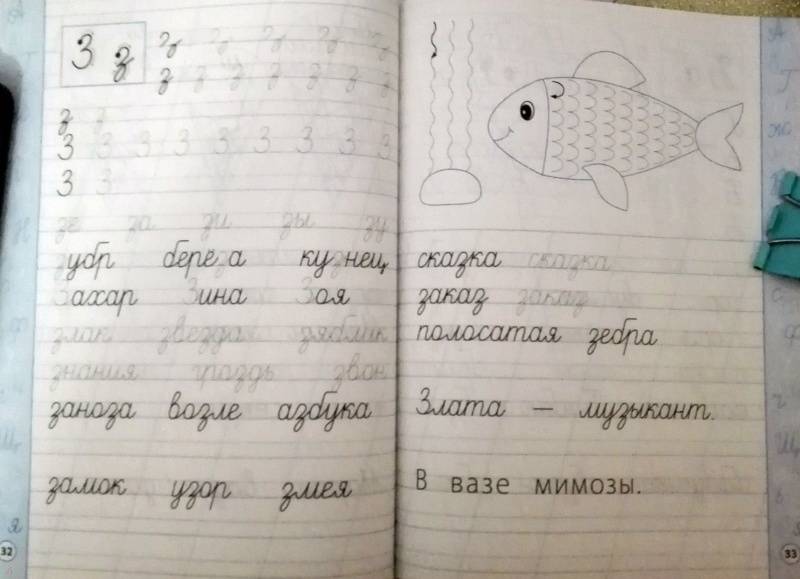 З з з з з з з з
з з з з з з з
з з
З З З З З З З З З
З З
зе за зи зы зу
зубр береза кузнец
Захар Зина Зоя
злак звезда зяблик
знания гроздь звон
заноза возле азбука
замок узор змея
32
сказка сказка
заказ заказ
полосатая зебра
Злата — музыкант.
В вазе мимозы.
33